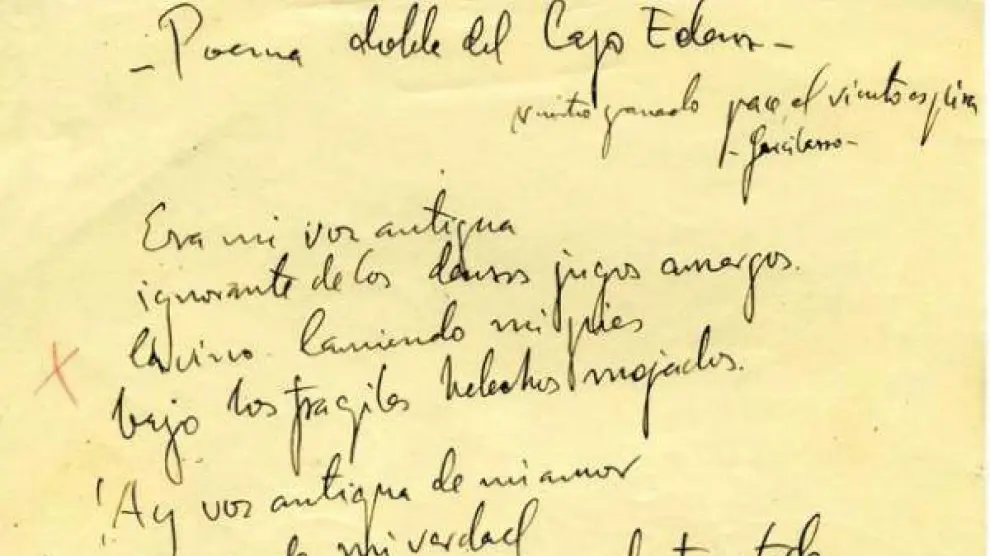 - Poema doble del Lago Edem -
nuestro ganado pace, el viento espira
- Garcilasso -
Era mi voz antigua
ignorante de los densos jugos amargos.
la vino lamiendo mis pies
bajo los fragiles helechos mojados.
¡Ay voz antigua de mi amor
mi verdad